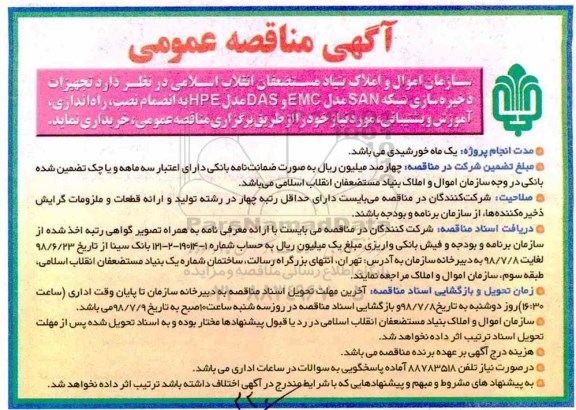 آگهی مناقصه عمومی
سازمان اموال و املاک بنیاد مستضعفان انقلاب اسلامی در نظر دارد تجهیزات
ذخیره سازی شبکه SAN مدل EMC و DAS مدل HPE به انضمام نصب، راه اندازی،
آموزش و پشتیبانی، مورد نیاز خود را از طریق برگزاری مناقصه عمومی، خریداری نماید.
مدت انجام پروژه: یک ماه خورشیدی می باشد.
مبلغ تضمین شرکت در مناقصه: چهارصد میلیون ریال به صورت ضمانت‌نامه بانکی دارای اعتبار سه ماهه و یا چک تضمین شده
بانکی در وجه سازمان اموال و املاک بنیاد مستضعفان انقلاب اسلامی می‌باشد.
صلاحیت: شرکت‌کنندگان در مناقصه می‌بایست دارای حداقل رتبه چهار در رشته تولید و ارائه قطعات و ملزومات گرایش
ذخیره‌کننده‌ها، از سازمان برنامه و بودجه باشند.
دریافت اسناد مناقصه: شرکت کنندگان در مناقصه می بایست با ارائه معرفی نامه به همراه تصویر گواهی رتبه اخذ شده از
سازمان برنامه و بودجه و فیش بانکی واریزی مبلغ یک میلیون ریال به حساب شماره ۱-۱۹۰۱۴-۲-۱۲۱ بانک سینا از تاریخ ۹۸/۶/۲۳
لغایت ۹۸/۷/۸ به دبیرخانه سازمان به آدرس: تهران، انتهای بزرگراه رسالت، ساختمان شماره یک بنیاد مستضعفان انقلاب اسلامی،
طبقه سوم، سازمان اموال و املاک مراجعه نمایند.
زمان تحویل و بازگشایی اسناد مناقصه: آخرین مهلت تحویل اسناد مناقصه به دبیرخانه سازمان تا پایان وقت اداری (ساعت
۱۶:۳۰) روز دوشنبه به تاریخ ۹۸/۷/۸ و بازگشایی اسناد مناقصه در روز سه شنبه ساعت ۱۰ صبح به تاریخ ۹۸/۷/۹ می باشد.
سازمان اموال و املاک بنیاد مستضعفان انقلاب اسلامی در رد یا قبول پیشنهادها مختار بوده و به اسناد تحویل شده پس از مهلت
تحویل اسناد ترتیب اثر داده نخواهد شد.
هزینه درج آگهی بر عهده برنده مناقصه می باشد.
در صورت نیاز تلفن ۸۸۷۸۳۵۱۸ آماده پاسخگویی به سوالات در ساعات اداری می باشد.
به پیشنهاد های مشروط و مبهم و پیشنهادهایی که با شرایط مندرج در آگهی اختلاف داشته باشد ترتیب اثر داده نخواهد شد.